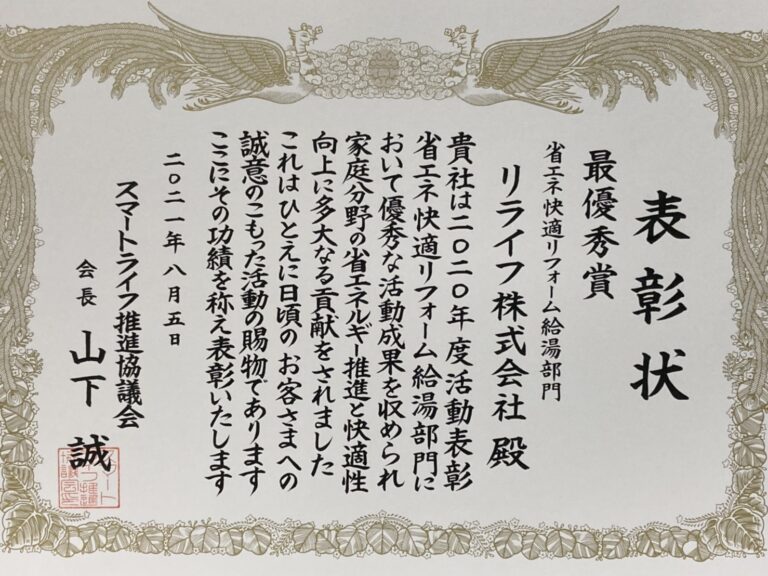 表彰状
最優秀賞
省エネ快適リフォーム給湯部門
リライフ株式会社 殿
貴社は二〇二〇年度活動表彰
省エネ快適リフォーム給湯部門に
おいて優秀な活動成果を収められ
家庭分野の省エネルギー推進と快適性
向上に多大なる貢献をされました
これはひとえに日頃のお客さまへの
誠意のこもった活動の賜物であります
ここにその功績を称え表彰いたします
二〇二一年八月五日
スマートライフ推進協議会
会長 山下 誠